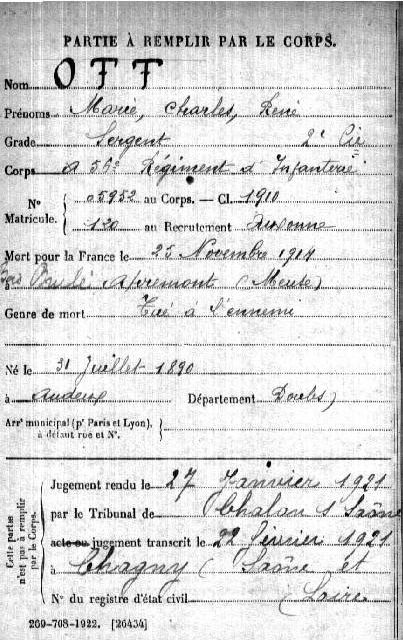 PARTIE À REMPLIR PAR LE CORPS.
Nom OTT
Prénoms Marie, Charles, René
Grade Sergent 2e Cie
Corps 56e Régiment d'Infanterie
N° 05952 au Corps. — Cl. 1910
Matricule. 120 au Recrutement Auxonne
Mort pour la France le 25 Novembre 1914
à Bois Brulé Apremont (Meuse)
Genre de mort Tué à l'ennemi
Né le 31 Juillet 1890
à Audeux Département Doubs
Arrt municipal (pr Paris et Lyon),
à défaut rue et N°.
Cette partie
n'est pas à remplir
par le Corps.
Jugement rendu le 27 Janvier 1921
par le Tribunal de Chalon s Saône
acte ou jugement transcrit le 22 février 1921
à Chagny (Saône et
N° du registre d'état civil Loire
269-708-1922. [26434]